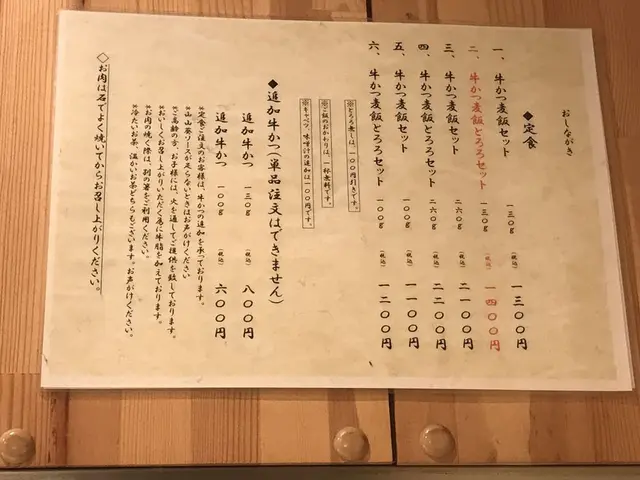 おしながき
◆定食
一、牛かつ麦飯セット 一三〇g (税込) 一三〇〇円
二、牛かつ麦飯とろろセット 一三〇g (税込) 一四〇〇円
三、牛かつ麦飯セット 二六〇g (税込) 二一〇〇円
四、牛かつ麦飯とろろセット 二六〇g (税込) 二二〇〇円
五、牛かつ麦飯セット 一〇〇g (税込) 一一〇〇円
六、牛かつ麦飯とろろセット 一〇〇g (税込) 一二〇〇円
※とろろ無しは、一〇〇円引きです。
※ご飯のおかわりは、一杯無料です。
※キャベツ、味噌汁の追加は一〇〇円です。
◆追加牛かつ(単品注文はできません)
追加牛かつ 一三〇g (税込) 八〇〇円
追加牛かつ 一〇〇g (税込) 六〇〇円
※定食ご注文のお客様は、牛かつの追加を承っております。
※山山葵ソースが足らないときはお声がけください
※ご高齢の方、お子様には、火を通してご提供を致しております。
※おいしくお召し上がりいただく為に牛脂を加えております。
※お肉の焼く際は、別の箸をご利用ください。
※冷たいお茶、温かいお茶どちらもございます。お声がけください。
◇お肉は石でよく焼いてからお召し上がりください。